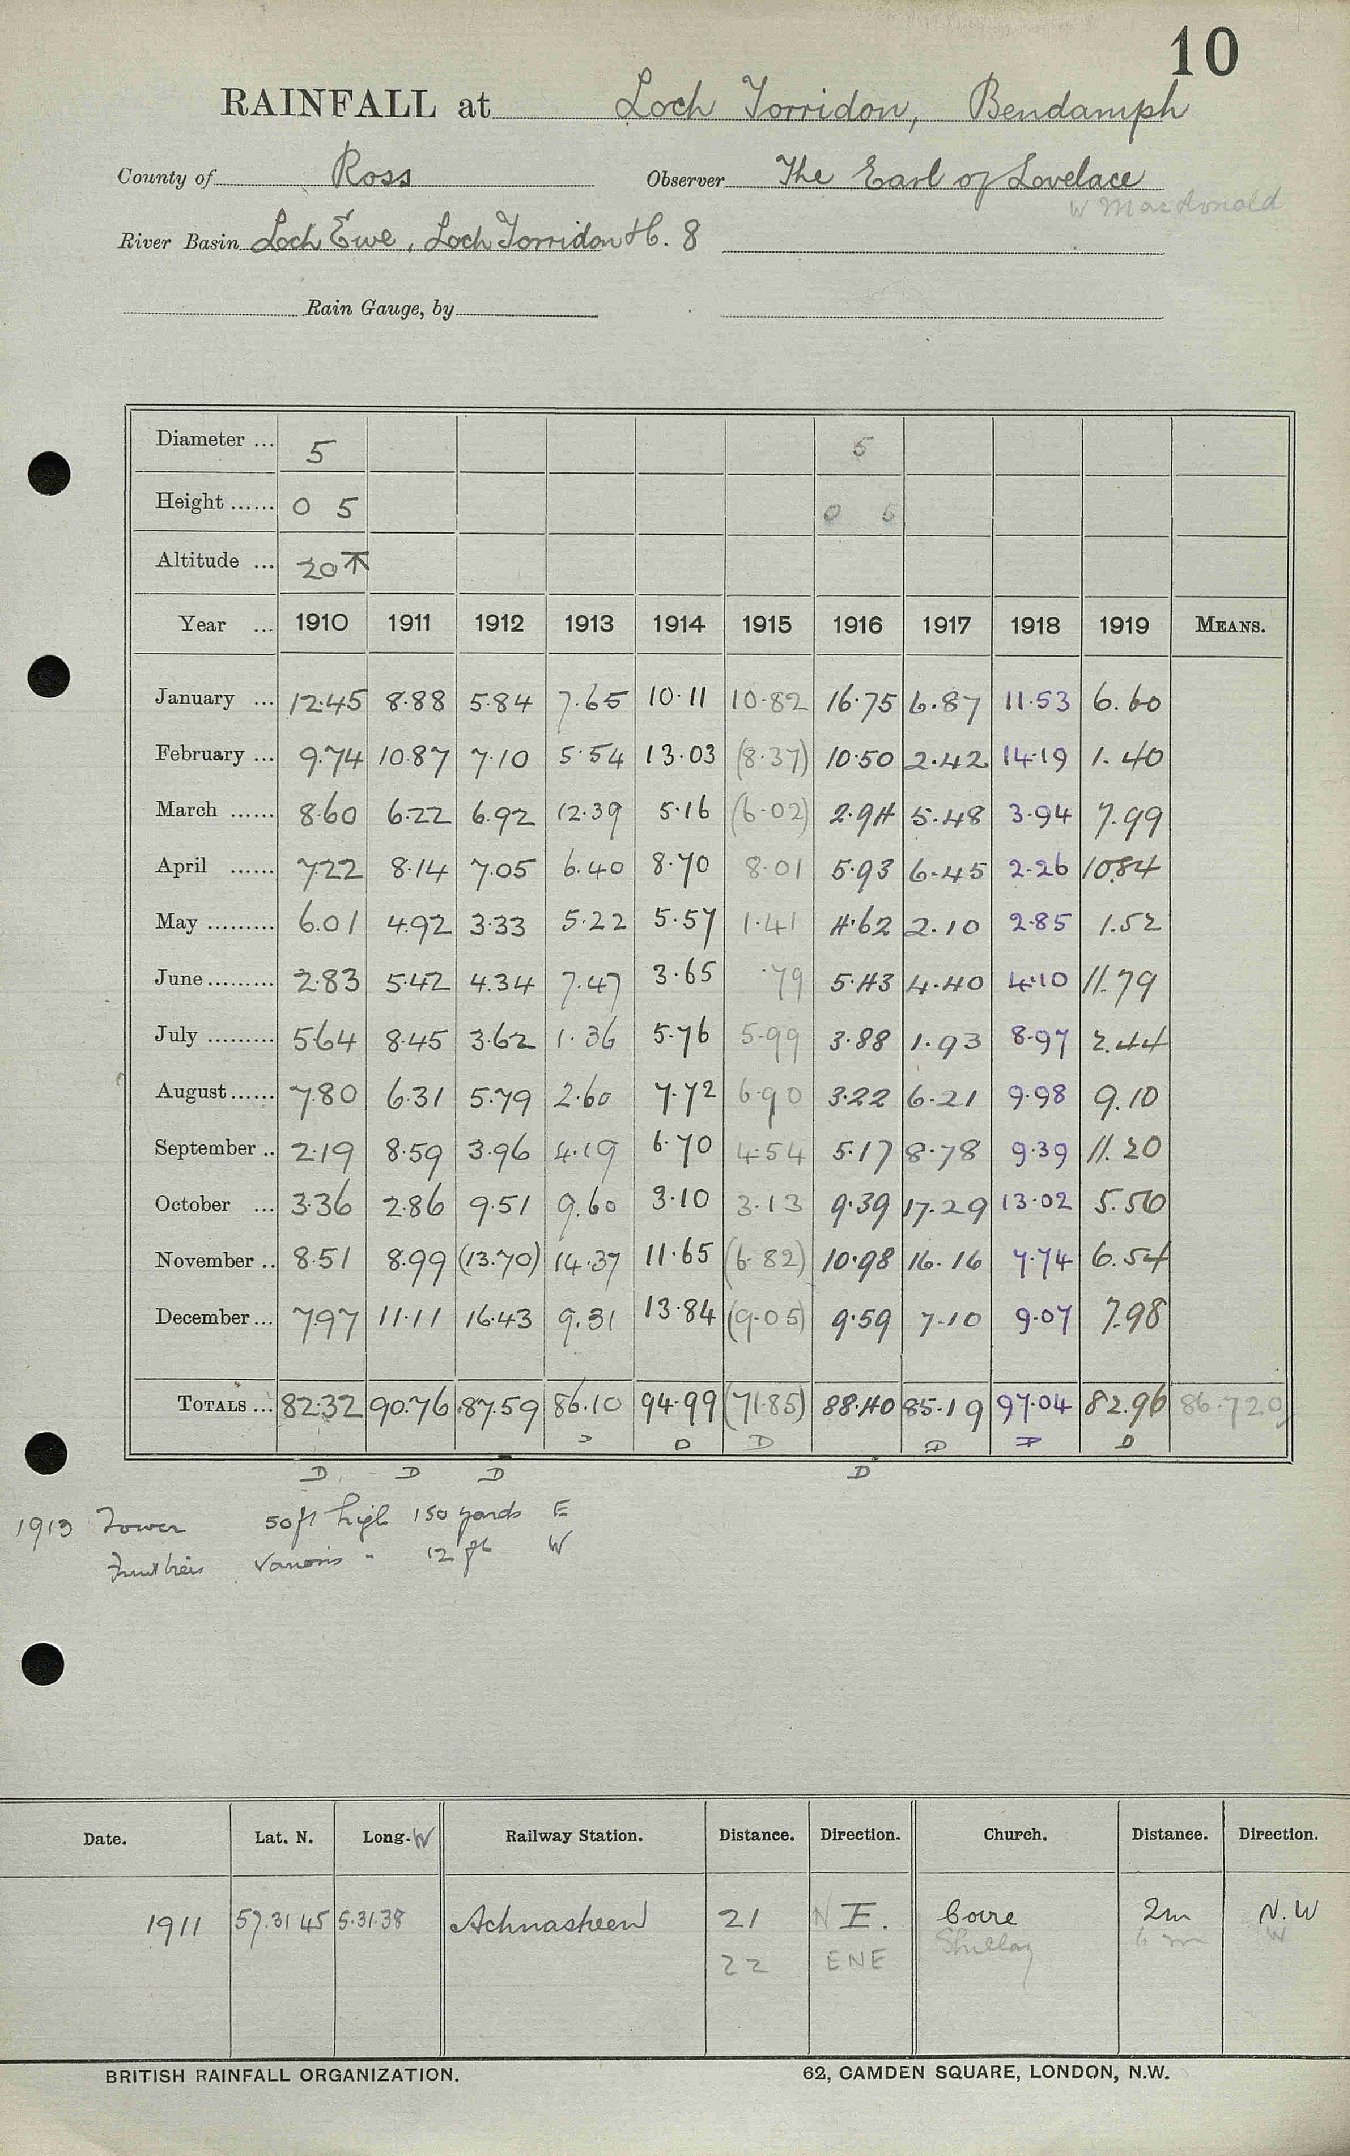 10
RAINFALL at Loch Torridon, Bendamph
County of Ross Observer The Earl of Lovelace
W MacDonald
River Basin Loch Ewe, Loch Torridon &c. 8
Rain Gauge, by
Diameter ... 5 5
Height ...... 0 5 0 5
Altitude ... 20 T
Year ... 1910 1911 1912 1913 1914 1915 1916 1917 1918 1919 MEANS.
January ... 12.45 8.88 5.84 7.65 10.11 10.82 16.75 6.87 11.53 6.60
February ... 9.74 10.87 7.10 5.54 13.03 (8.37) 10.50 2.42 14.19 1.40
March ...... 8.60 6.22 6.92 12.39 5.16 (6.02) 2.94 5.48 3.94 7.99
April ...... 7.22 8.14 7.05 6.40 8.70 8.01 5.93 6.45 2.26 10.84
May ......... 6.01 4.92 3.33 5.22 5.57 1.41 4.62 2.10 2.85 1.52
June ......... 2.83 5.42 4.34 7.47 3.65 .79 5.43 4.40 4.10 11.79
July ......... 5.64 8.45 3.62 1.36 5.76 5.99 3.88 1.93 8.97 2.44
August ...... 7.80 6.31 5.79 2.60 7.72 6.90 3.22 6.21 9.98 9.10
September .. 2.19 8.59 3.96 4.19 6.70 4.54 5.17 8.78 9.39 11.20
October ... 3.36 2.86 9.51 9.60 3.10 3.13 9.39 17.29 13.02 5.50
November .. 8.51 8.99 (13.70) 14.37 11.65 (6.82) 10.98 16.16 7.74 6.54
December ... 7.97 11.11 16.43 9.31 13.84 (9.05) 9.59 7.10 9.07 7.98
TOTALS ... 82.32 90.76 87.59 86.10 94.99 (71.85) 88.40 85.19 97.04 82.96 86.720
D D D D D D D D D D
1913 Tower 50ft high 150 yards E
Fruit trees various " 12 ft W
Date. Lat. N. Long. W Railway Station. Distance. Direction. Church. Distance. Direction.
1911 57.31 45 5.31.38 Achnasheen 21 N E. Coire 2m N.W
22 ENE 6 m W
BRITISH RAINFALL ORGANIZATION. 62, CAMDEN SQUARE, LONDON, N.W.